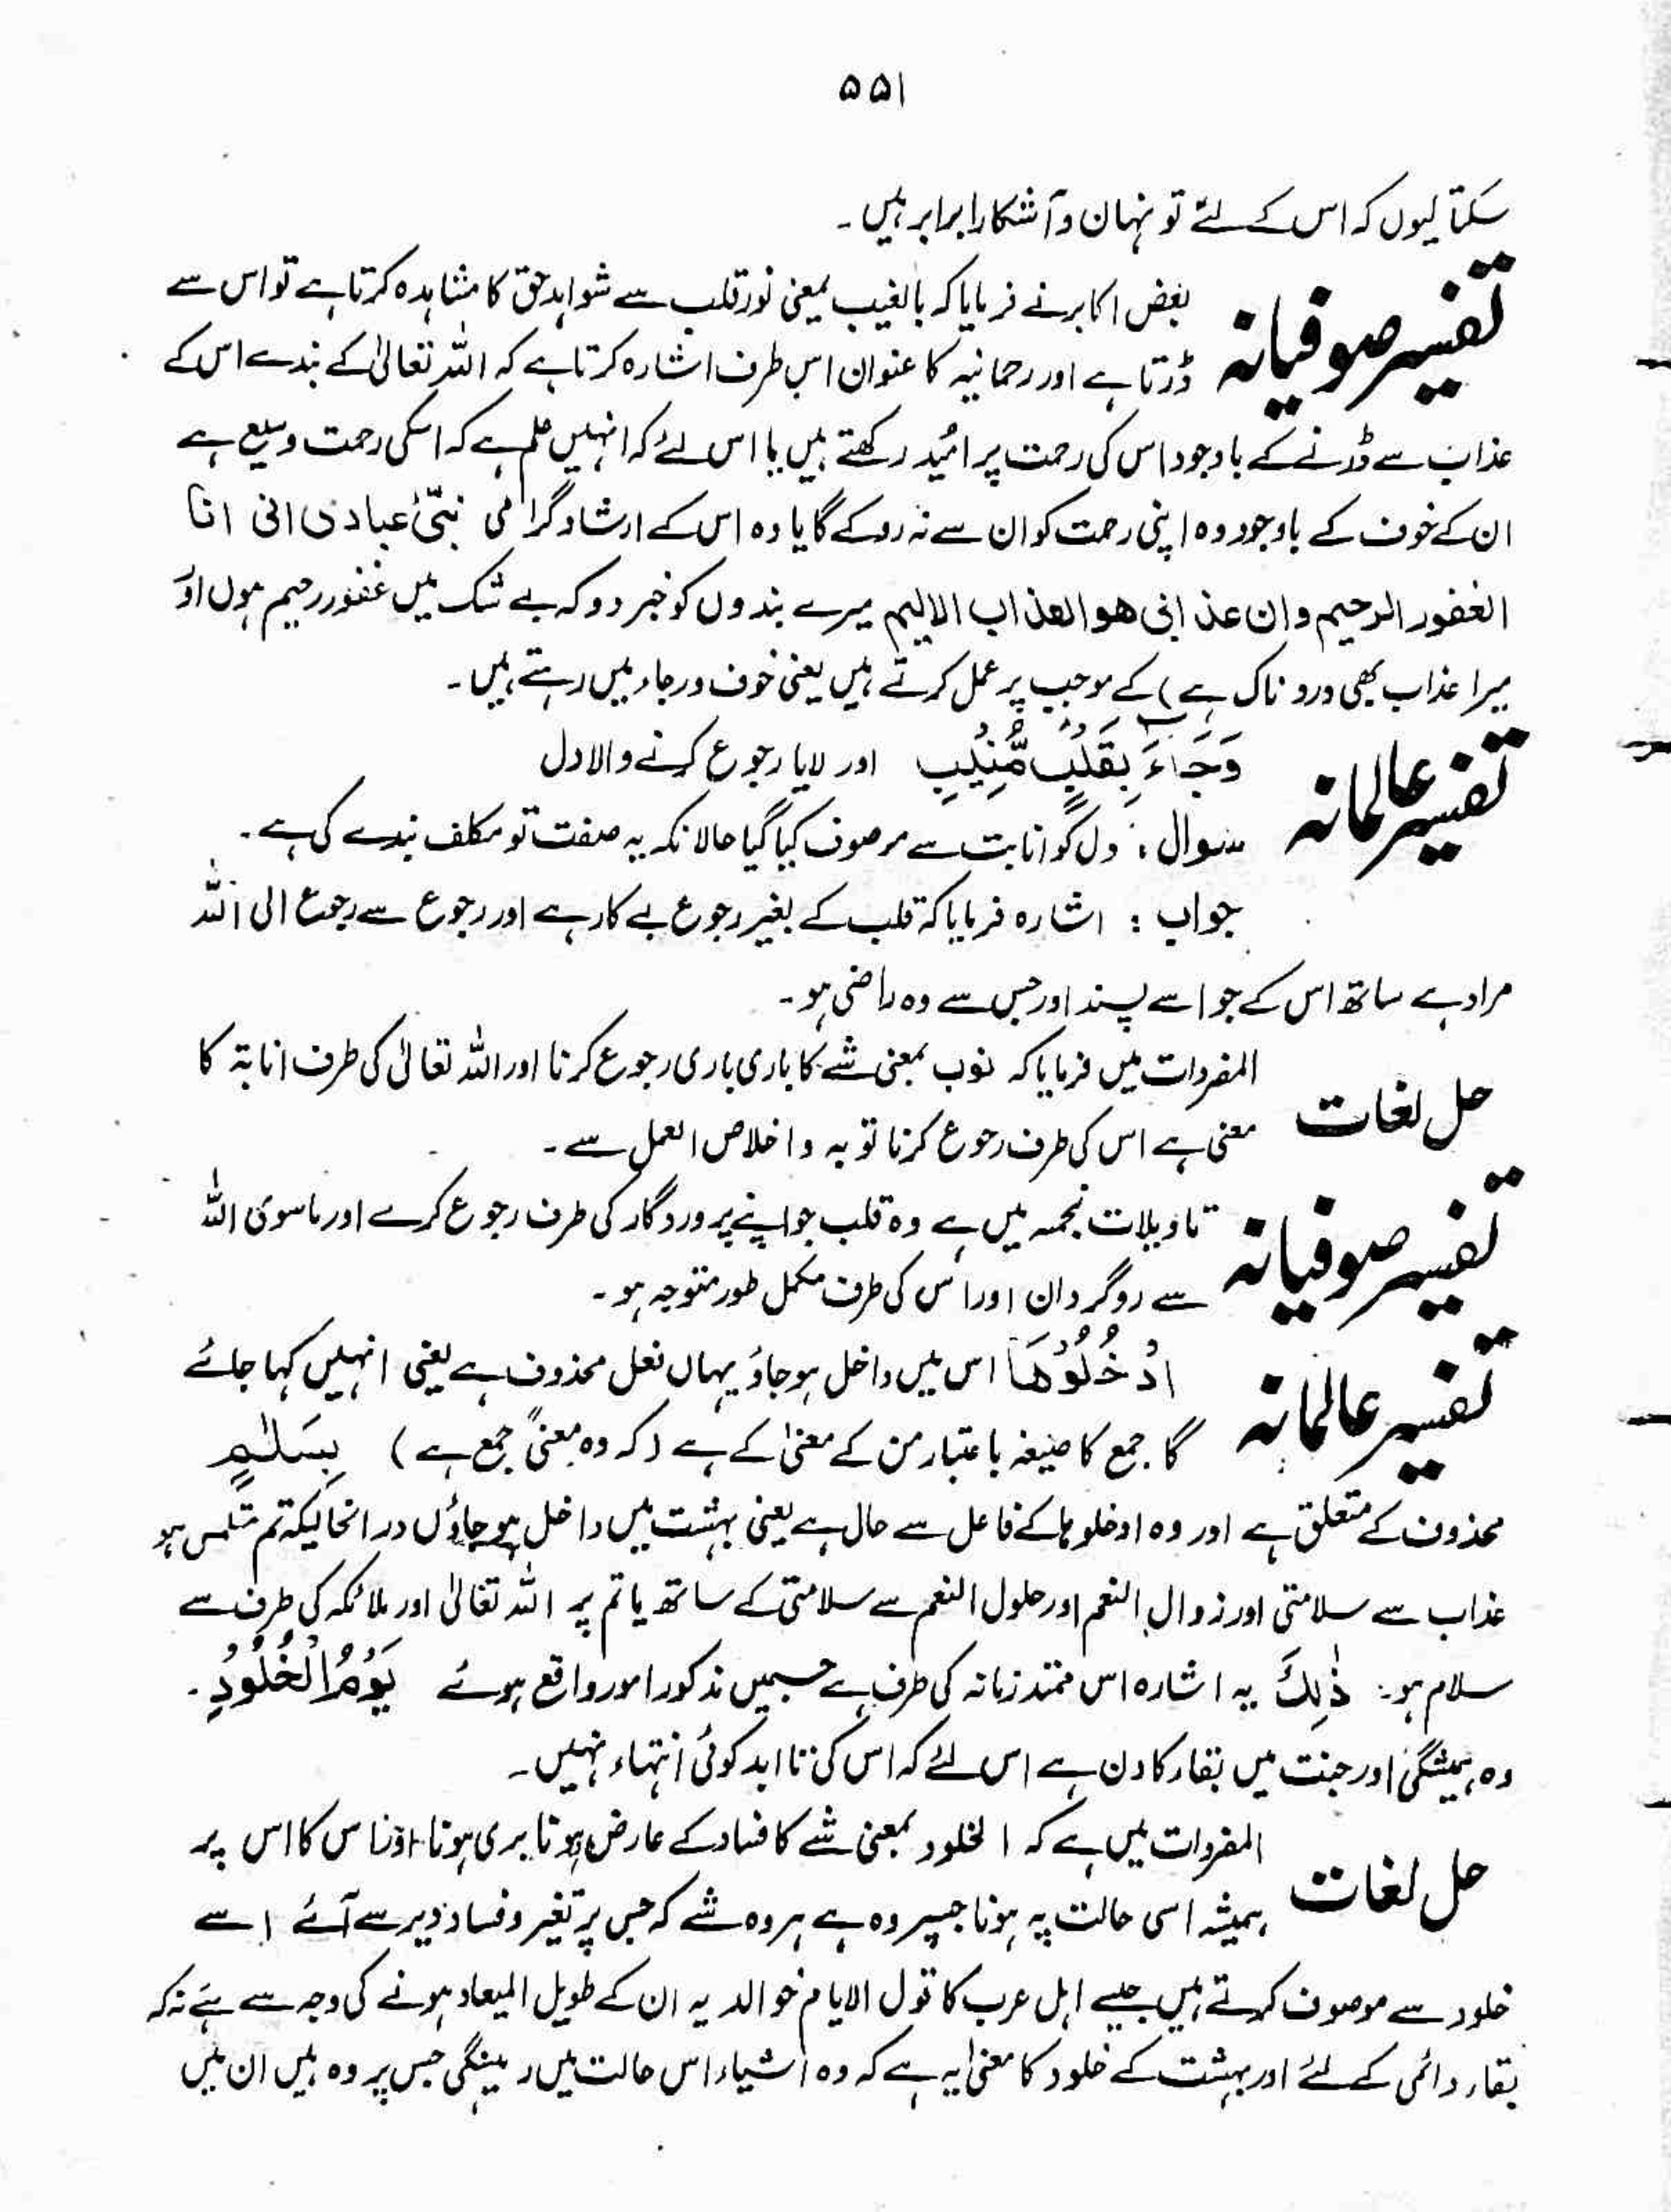 ۵۵۱
سکتا کیوں کہ اس کے لئے تو نہان و آشکارا برابر ہیں۔
تفسیر صوفیانہ
بعض اکابر نے فرمایا کہ بالغیب بمعنی نور قلب سے شواہد حق کا مشاہدہ کرتا ہے تو اس سے
ڈرتا ہے اور رحمانیہ کا عنوان اس طرف اشارہ کرتا ہے کہ اللہ تعالیٰ کے بندے اس کے
عذاب سے ڈرنے کے باوجود اس کی رحمت پر امُید رکھتے ہیں یا اس لئے کہ انہیں علم ہے کہ اسکی رحمت وسیع ہے
ان کے خوف کے باوجود وہ اپنی رحمت کو ان سے نہ روکے گا یا وہ اس کے ارشاد گرامی نبّیٔ عبادی انی انا
الغفور الرحیم وان عذابی ھو العذاب الالیم میرے بندوں کو خبر دو کہ بے شک میں غفور رحیم ہوں اور
میرا عذاب بھی درد ناک ہے) کے موجب پر عمل کرتے ہیں یعنی خوف ورجاء میں رہتے ہیں۔
تفسیر عالمانہ
وَجَآءَ بِقَلْبٍ مُّنِیْبٍ اور لایا رجوع کرنے والا دل
سوال : دل کو انابت سے موصوف کیا گیا حالانکہ یہ صفت تو مکلف بندے کی ہے۔
جواب : اشارہ فرمایا کہ قلب کے بغیر رجوع بے کار ہے اور رجوع سے رجوع الی اللہ
مراد ہے ساتھ اس کے جو اسے پسند اور جس سے وہ راضی ہو۔
حل لغات
المفردات میں فرمایا کہ نوب بمعنی شے کا باری باری رجوع کرنا اور اللہ تعالیٰ کی طرف انابتہ کا
معنی ہے اس کی طرف رجوع کرنا توبہ و اخلاص العمل سے۔
تفسیر صوفیانہ
تاویلات نجمہ میں ہے وہ قلب جو اپنے پروردگار کی طرف رجوع کرے اور ماسوی اللہ
سے روگردان اور اس کی طرف مکمل طور متوجہ ہو۔
تفسیر عالمانہ
اُدْخُلُوْھَا اس میں داخل ہوجاؤ یہاں فعل محذوف ہے یعنی انہیں کہا جائے
گا جمع کا صیغہ باعتبار من کے معنیٰ کے ہے (کہ وہ معنیً جمع ہے) بِسَلٰمٍ
محذوف کے متعلق ہے اور وہ ادخلوہا کے فاعل سے حال ہے یعنی بہشت میں داخل ہوجاؤں در انحالیکہ تم متلبس ہو
عذاب سے سلامتی اور زوال النعم اور حلول النقم سے سلامتی کے ساتھ یا تم پر اللہ تعالیٰ اور ملائکہ کی طرف سے
سلام ہو۔ ذٰلِکَ یہ اشارہ اس ممتد زمانہ کی طرف ہے جسمیں مذکور امور واقع ہوئے یَوْمُ الْخُلُوْدِ۔
وہ ہمیشگی اور جنت میں بقاء کا دن ہے اس لئے کہ اس کی تا ابد کوئی انتہاء نہیں۔
حل لغات
المفردات میں ہے کہ الخلود بمعنی شے کا فساد کے عارض ہونا بری ہونا اور اس کا اس پر
ہمیشہ اسی حالت پہ ہونا جسپر وہ ہے ہر وہ شے کہ جس پر تغیر وفساد دیر سے آئے اسے
خلود سے موصوف کرتے ہیں جیسے اہل عرب کا قول الایام خوالد یہ ان کے طویل المیعاد ہونے کی وجہ سے ہے نہ کہ
بقاء دائمی کے لئے اور بہشت کے خلود کا معنیٰ یہ ہے کہ وہ اشیاء اس حالت میں رہینگی جس پر وہ ہیں ان میں